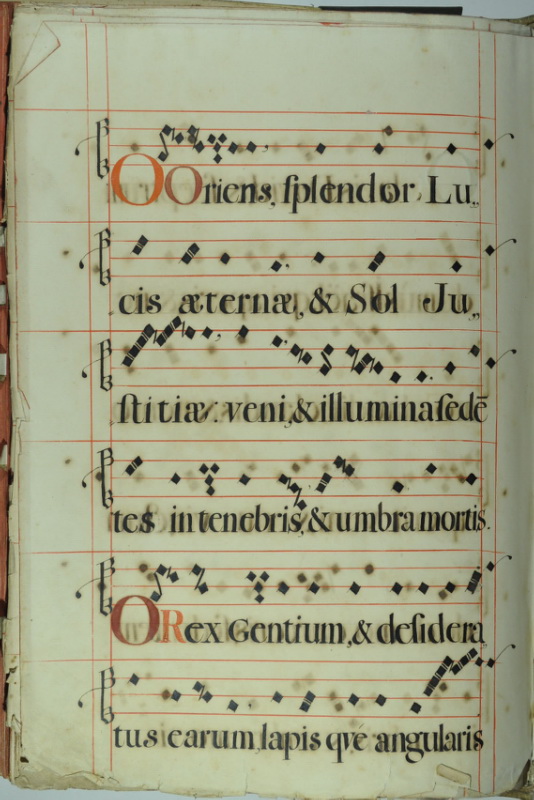 O Oriens, ſplendor Lu,,
cis æternæ, & Sol Ju,,
ſtitiæ: veni, & illumina ſedē
tes in tenebris, & umbra mortis.
O Rex Gentium, & deſidera
tus earum, lapis qvé angularis